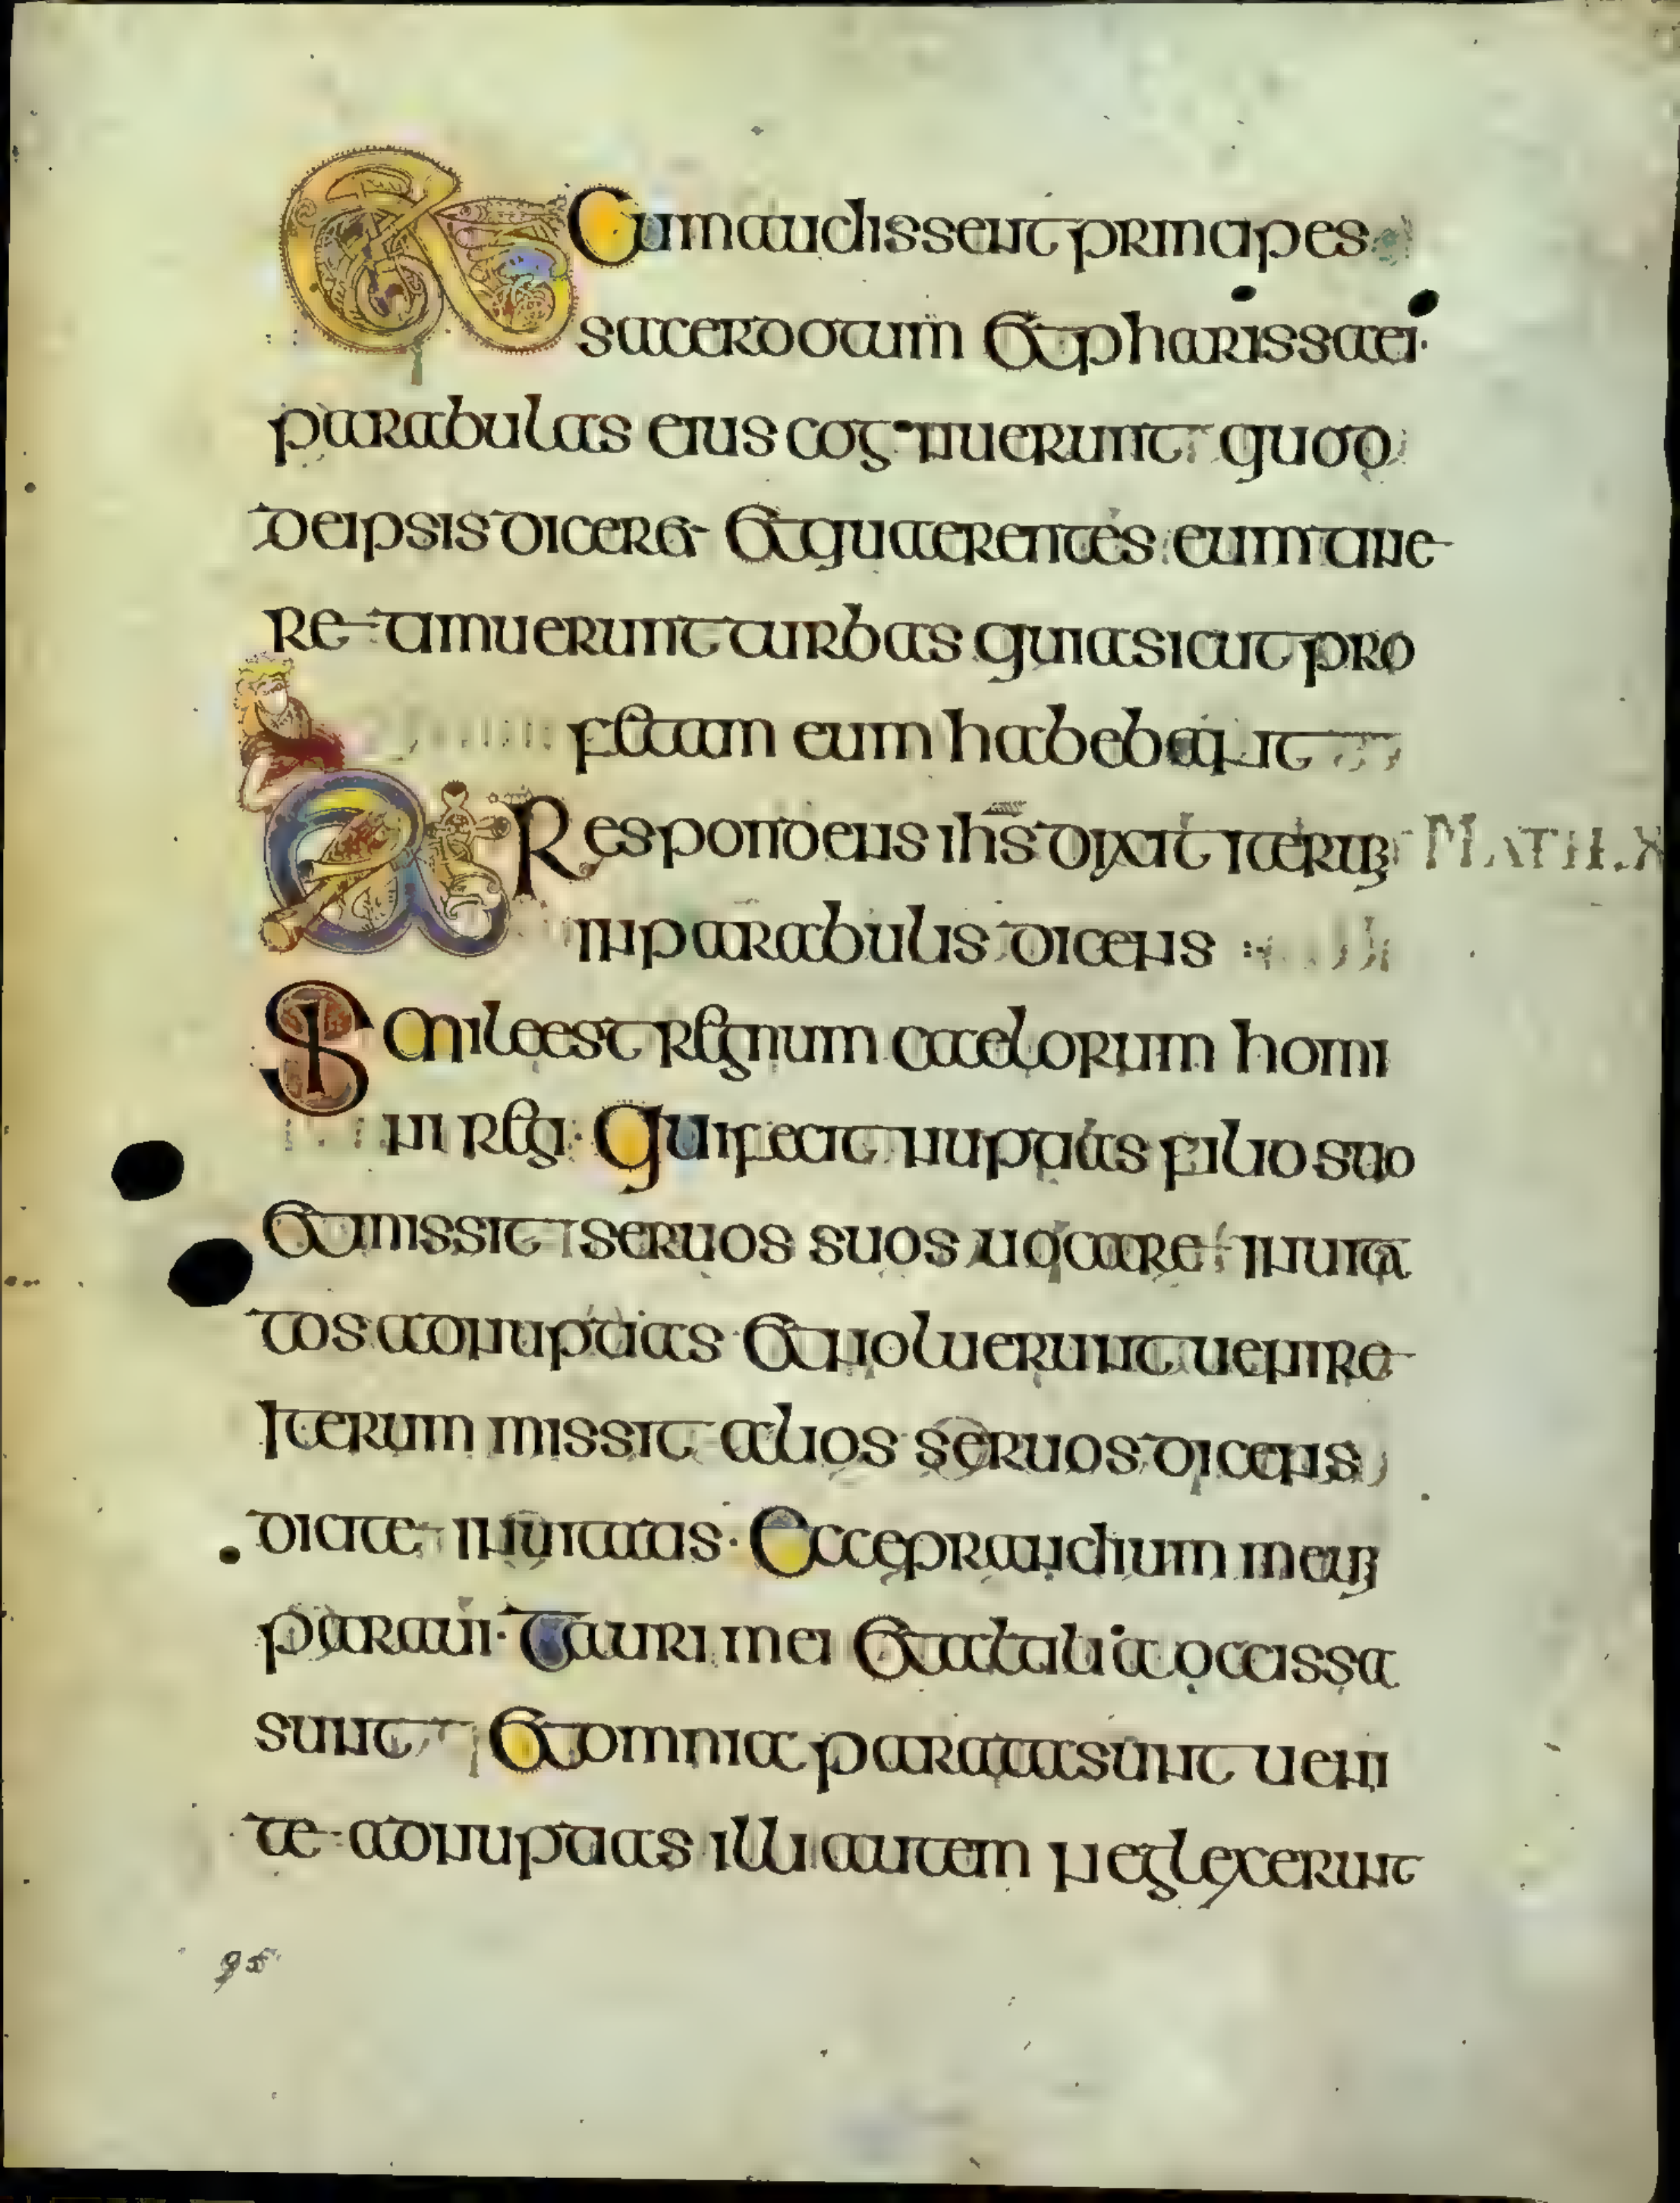 Et Cum audissent principes
sacerdotum et pharissaei·
parabulas eius cognuerunt quod
de ipsis diceret et quaerentes eum tene
re timuerunt turbas quia sicut pro
fetam eum habebant
Et Respondens ihs dixit iterum MATH. X
in parabulis dicens
Simile est regnum caelorum homi
ni regi· qui fecit nuptias filio suo
et missit seruos suos uocare inuita
tos ad nuptias et noluerunt uenire
Iterum missit alios seruos dicens
dicite inuitatis· Ecce prandium meum
paraui· Tauri mei et altalia occissa
sunt et omnia parata sunt ueni
te ad nuptias illi autem neglexerunt
95